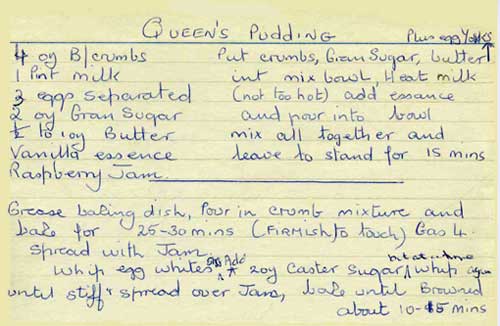 QUEEN'S PUDDING Plus egg Yolks
4 oz B/crumbs Put crumbs, Gran Sugar, butter
1 Pint milk int mix bowl, Heat milk
3 eggs separated (not too hot) add essance
2 oz Gran Sugar and pour into bowl
½ to 1oz Butter mix all together and
Vanilla essence leave to stand for 15 mins
Raspberry Jam.
Grease baking dish, Pour in crumb mixture and
bake for 25-30 mins (FIRMISH to touch) Gas 4.
spread with Jam.
Whip egg whites Add 2oz Caster Sugar, whip again
until stiff & spread over Jam, bake until Browned
about 10-15 mins